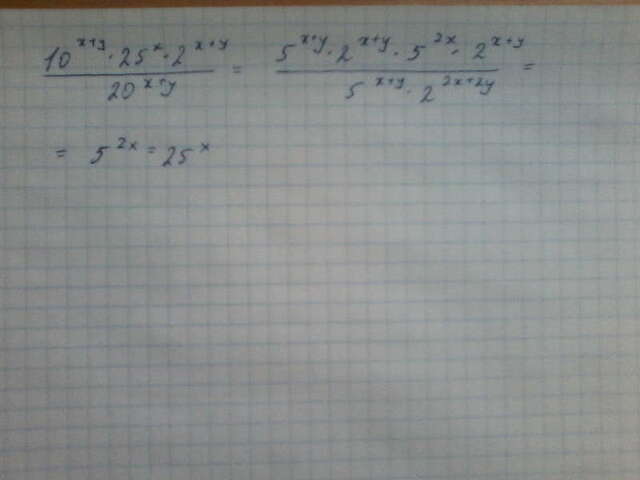 \frac{10^{x+y} \cdot 25^{x} \cdot 2^{x+y}}{20^{x+y}} = \frac{5^{x+y} \cdot 2^{x+y} \cdot 5^{2x} \cdot 2^{x+y}}{5^{x+y} \cdot 2^{2x+2y}} =
= 5^{2x} = 25^{x}